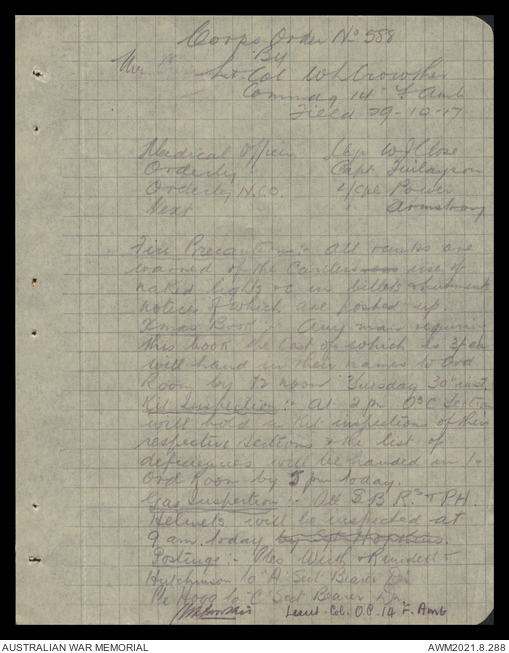 Corps Order No 588
By
Lt. Col W.H. Crowther
Commdg 14 F. Amb
Field 29-10-17
Medical Officer Cap W J Close
Orderly " Capt. Finlayson
Orderly N.C.O. L/Cpl Power
Next " Armstrong
Fire Precautions:- All ranks are
warned of the careless use of
naked lights &c in billets &
notices of which are posted up.
Xmas Book:- Any man requiring
this book the cost of which is
will hand in their names to Ord
Room by 12 noon Tuesday 30th inst.
Kit Inspection:- At 2 pm O's C Sections
will hold a Kit inspection of their
respective sections & the list of
deficiencies will be handed in to
Ord Room by 5 pm today.
Gas Inspection:- All S B R's & P.H.
Helmets will be inspected at
9 am today by Sgt Hopkins.
Postings:- Ptes & Rundell &
Hutchinson to A Sect Bearer
Pte Hogg to C Sect Bearer
Lieut. Col. O.C. 14 F. Amb
AUSTRALIAN WAR MEMORIAL
AWM2021.8.288